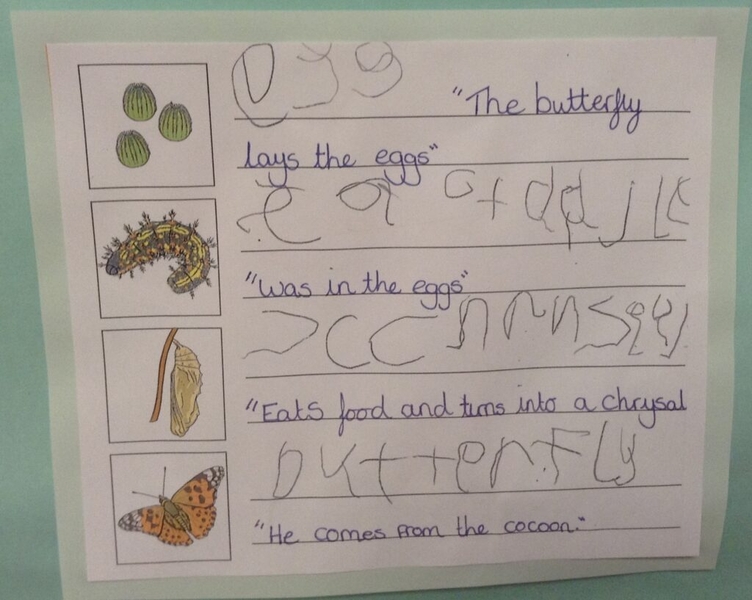 egg
"The butterfly
lays the eggs"
"Was in the eggs"
"Eats food and turns into a chrysal
butterfly
"He comes from the cocoon."